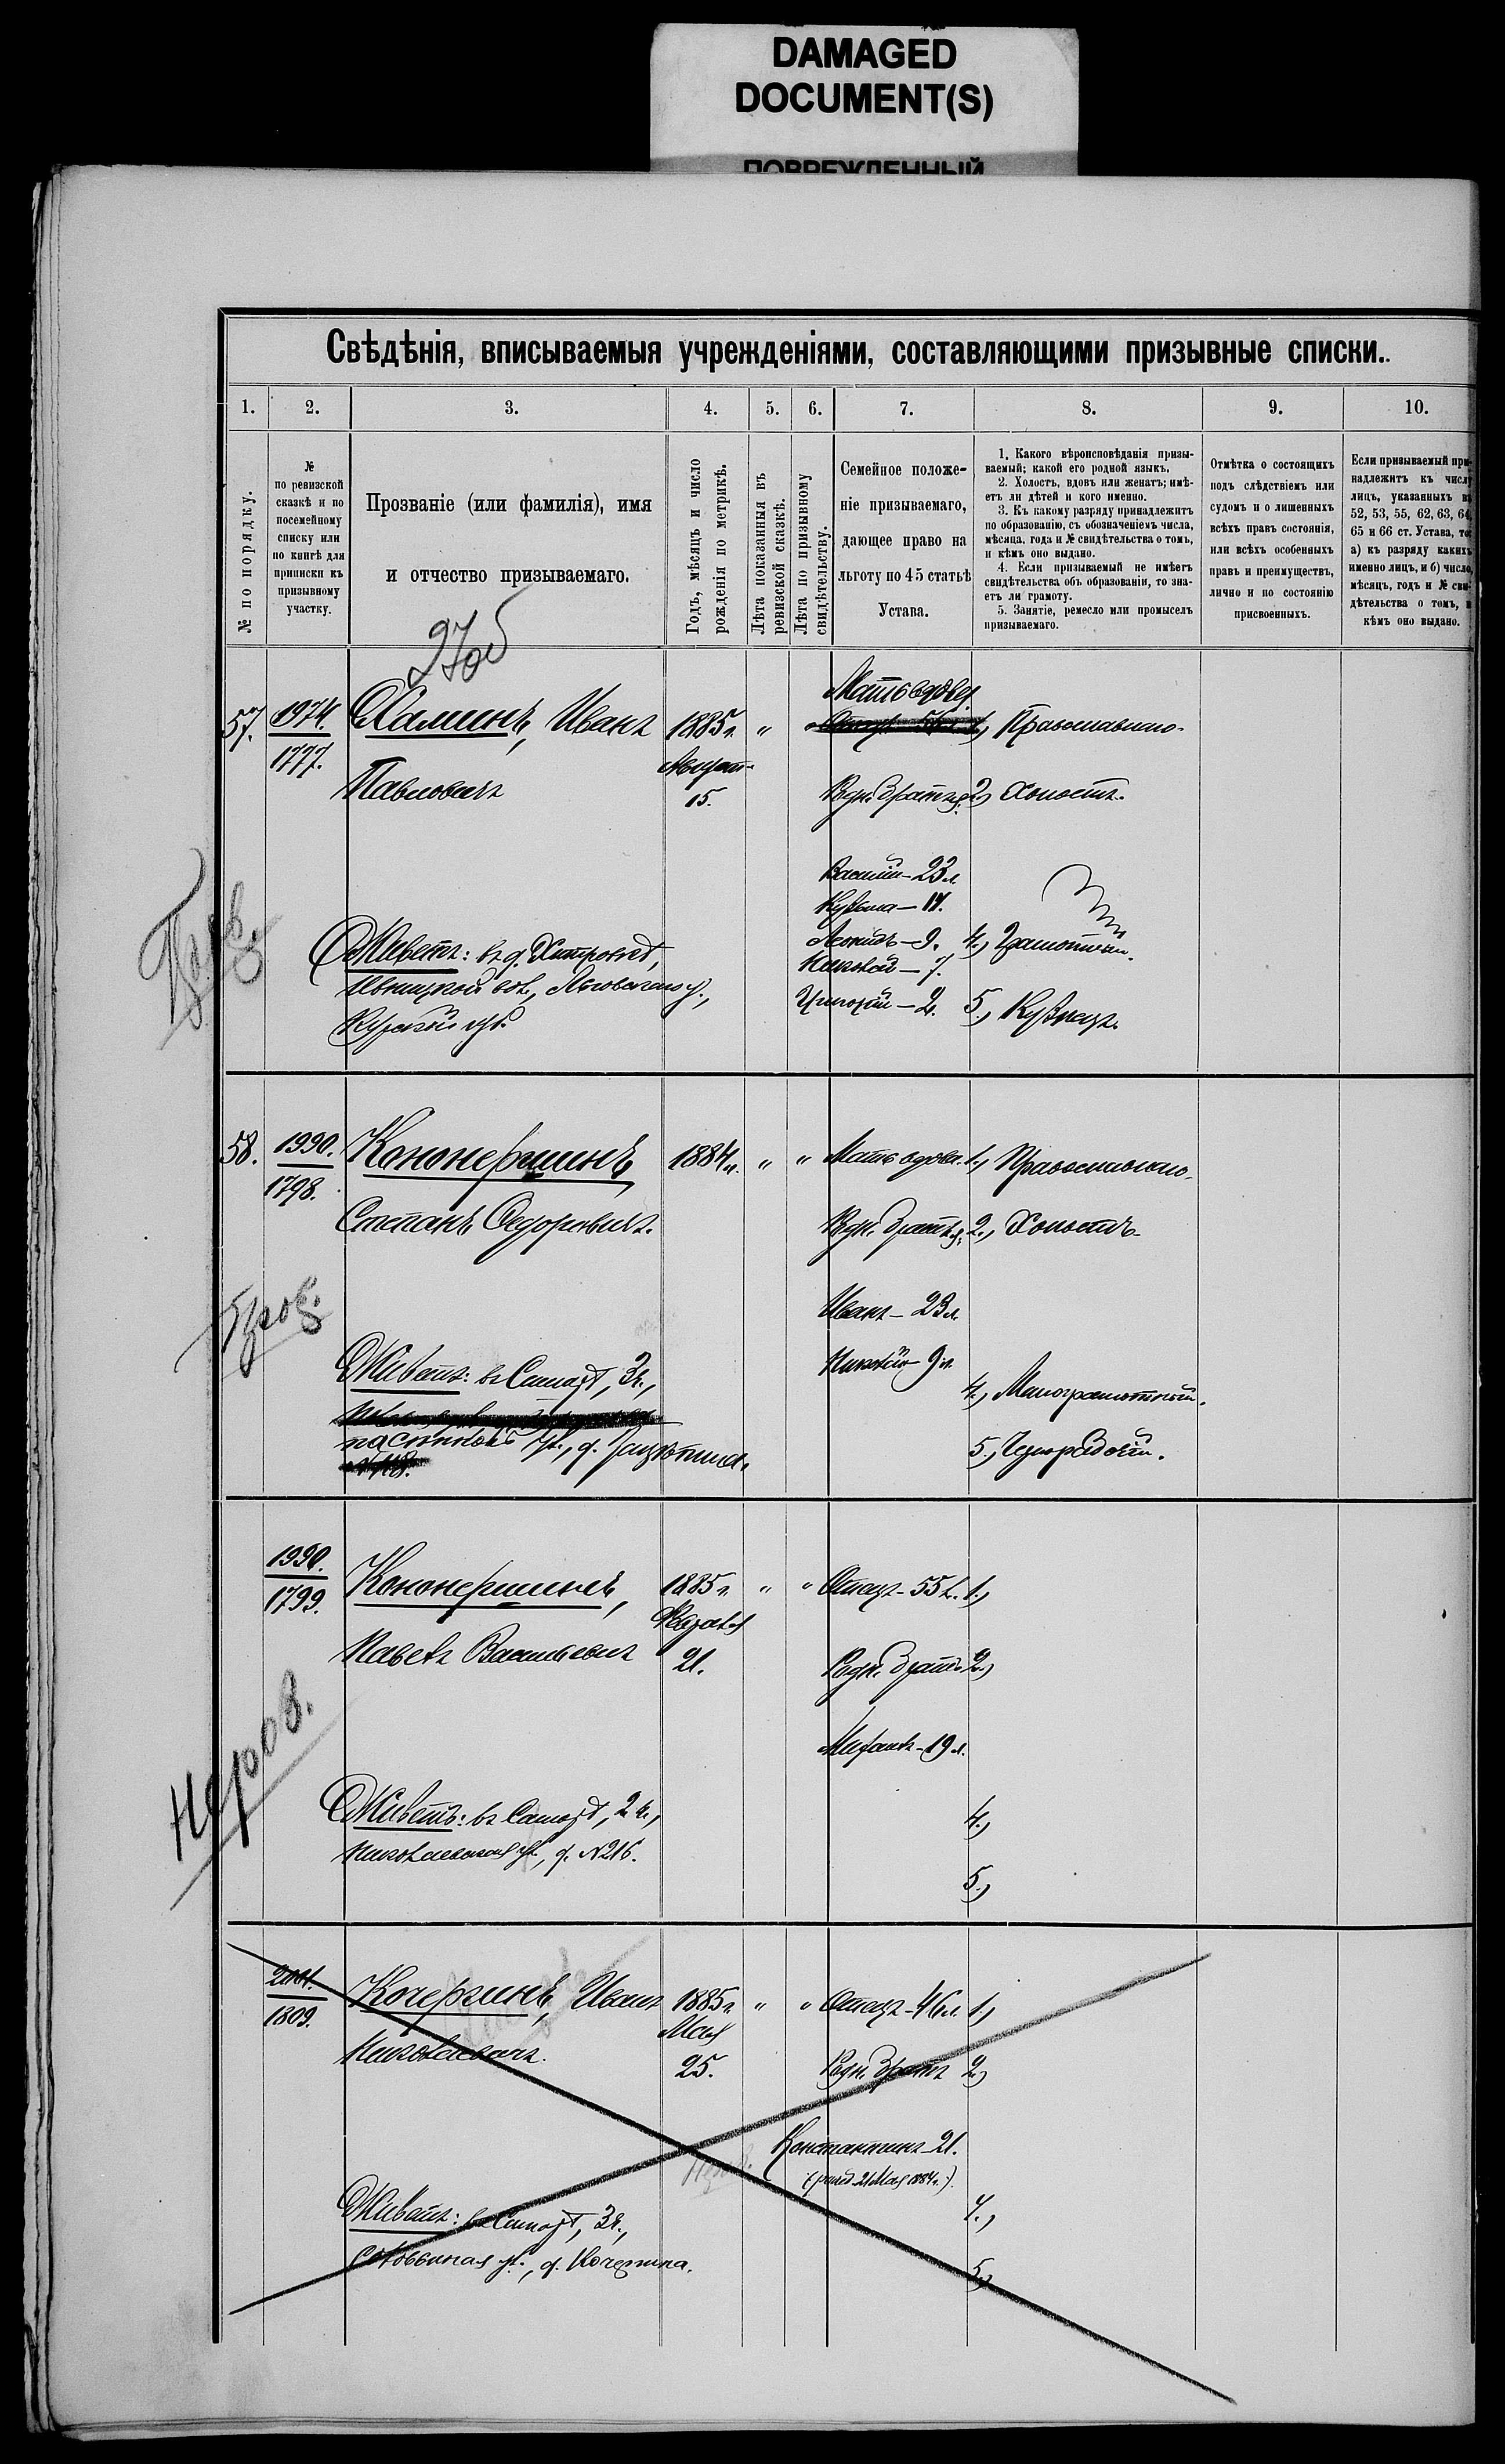 DAMAGED
DOCUMENT(S)
ПОВРЕЖДЕННЫЙ
Свѣдѣнія, вписываемыя учрежденіями, составляющими призывные списки..
1. 2. 3. 4. 5. 6. 7. 8. 9. 10.
№ по порядку.
№
по ревизской
сказкѣ и по
посемейному
списку или
по книгѣ для
приписки къ
призывному
участку.
Прозваніе (или фамилія), имя
и отчество призываемаго.
Годъ, мѣсяцъ и число
рожденія по метрикѣ.
Лѣта показанныя въ
ревизской сказкѣ.
Лѣта по призывному
свидѣтельству.
Семейное положе-
ніе призываемаго,
дающее право на
льготу по 45 статьѣ
Устава.
1. Какого вѣроисповѣданія призы-
ваемый; какой его родной языкъ.
2. Холостъ, вдовъ или женатъ; имѣ-
етъ ли дѣтей и кого именно.
3. Къ какому разряду принадлежитъ
по образованію, съ обозначеніемъ числа,
мѣсяца, года и № свидѣтельства о томъ,
и кѣмъ оно выдано.
4. Если призываемый не имѣетъ
свидѣтельства объ образованіи, то зна-
етъ ли грамоту.
5. Занятіе, ремесло или промыселъ
призываемаго.
Отмѣтка о состоящихъ
подъ слѣдствіемъ или
судомъ и о лишенныхъ
всѣхъ правъ состоянія,
или всѣхъ особенныхъ
правъ и преимуществъ,
лично и по состоянію
присвоенныхъ.
Если призываемый при-
надлежитъ къ числу
лицъ, указанныхъ въ
52, 53, 55, 62, 63, 64,
65 и 66 ст. Устава, то:
а) къ разряду какихъ
именно лицъ, и б) число,
мѣсяцъ, годъ и № сви-
дѣтельства о томъ, и
кѣмъ оно выдано.
57. 1974. Халинъ, Иванъ 1885г. " Мать вдова 1, Православно.
1777. Павловичъ Августа 15. Родн. братья: 2, Холостъ.
Василій - 23 л.
Кузьма - 17.
Леонидъ - 9. 4, Грамотный.
Николай - 7.
Григорій - 2. 5, Кузнецъ.
Живетъ: въ д.
вол., Льговскаго у.,
Курской губ.
58. 1990. Кононершинъ, 1884г. " " Мать вдова. 1, Православно.
1798. Степанъ Ѳедоровичъ. Родн. братья: 2, Холостъ.
Иванъ - 23 л.
Николай 9 л.
4, Малограмотный.
5, Чернорабочій.
Живетъ: въ Самарѣ, 3ч.,
ул., д.
1990. Кононершинъ, 1885г. " " Отецъ - 55 л. 1,
1799. Павелъ Васильевичъ 21. Родн. братъ 2,
Михаилъ - 19 л.
4,
5,
Живетъ: въ Самарѣ, 2ч.,
Николаевская ул., д. №216.
Неров.
2001. Кочергинъ, Иванъ 1885г. " " Отецъ - 46 л. 1,
1809. Николаевичъ. Мая 25. Родн. братъ 2,
Константинъ - 21.
(род. 21 Мая 1884г.).
4,
5,
Живетъ: въ Самарѣ, 3ч.,
ул., д. Кочергина.